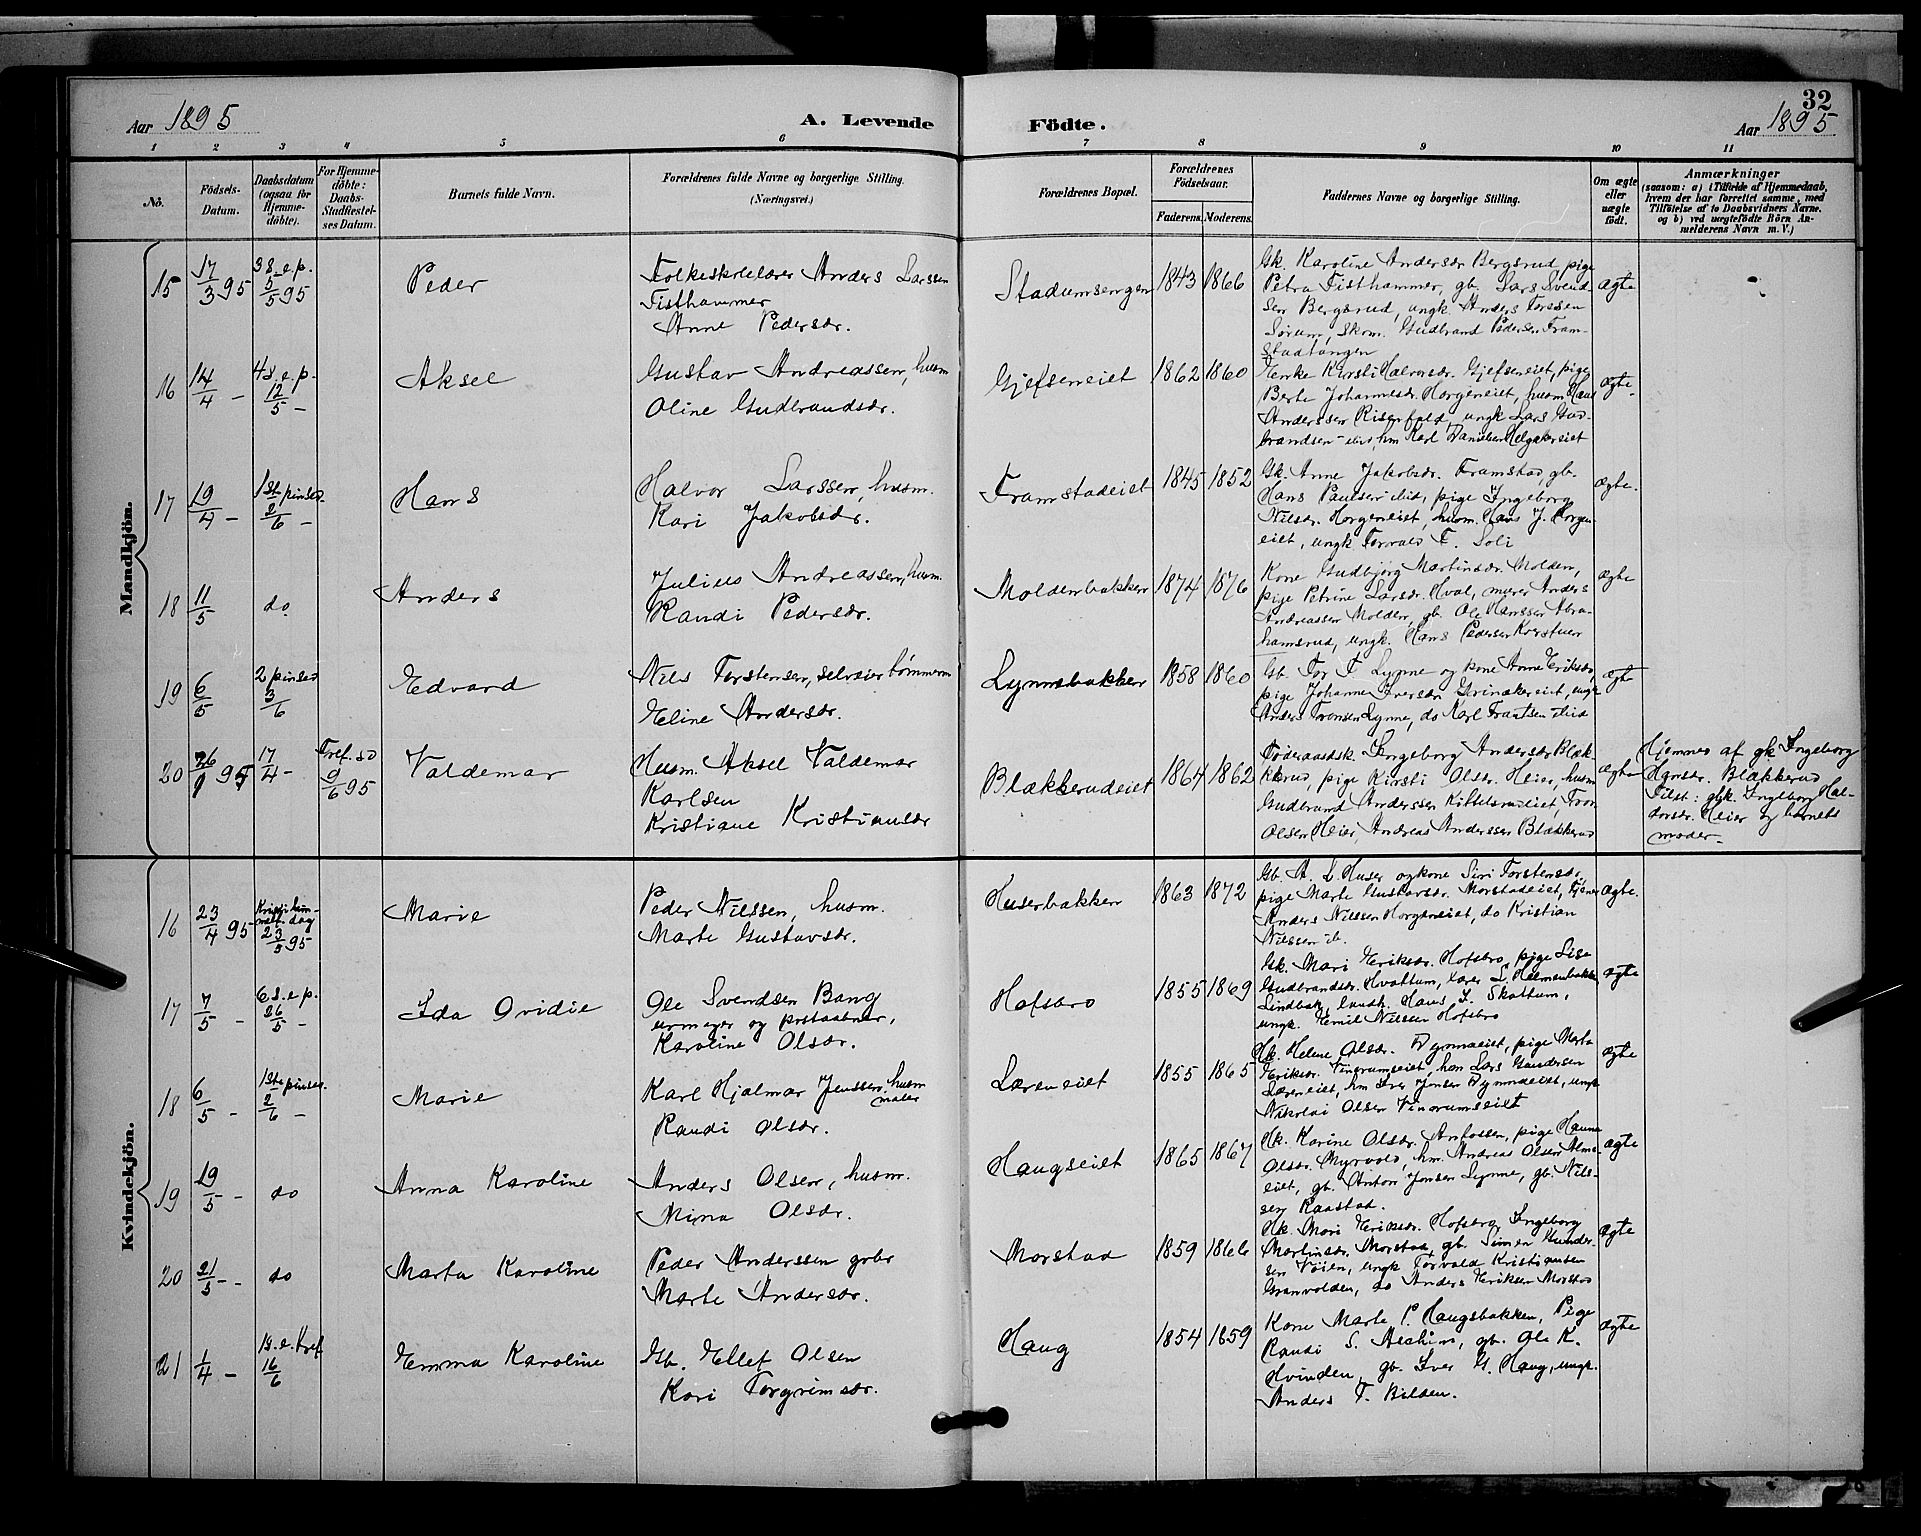 32
Aar 1895
A. Levende Födte.
Aar 1895
1 2 3 4 5 6 7 8 9 10 11
No.
Födsels-Datum.
Daabsdatum (ogsaa för Hjemme-döbte).
For Hjemme-döbte: Daabs-Stadfæstel-ses Datum.
Barnets fulde Navn.
Forældrenes fulde Navne og borgerlige Stilling.
(Næringsvei.)
Forældrenes Bopæl.
Forældrenes Födselsaar.
Faderens. Moderens.
Faddernes Navne og borgerlige Stilling.
Om ægte eller uægte födt.
Anmærkninger
(saasom: a) i Tilfælde af Hjemmedaab,
hvem der har forrettet samme, med
Tilföielse af to Daabsvidners Navne.
og b) ved uægtefödte Börn An-
melderens Navn m. V.)
Mandkjön.
15 17/3 95 3 s. e. p. 5/5 95 Peder
Folkeskolelærer Anders Larssen
Fisthammer
Anne Pedersdr.
Stadumsengen 1843 1866
Gk. Karoline Andersdr Bergsrud, pige
Petra Fisthammer, gb. Lars Svend-
sen Bergsrud, ungk Anders Torssen
Sørum, skom. Gudbrand Pedersen Fram-
stadtangen
ægte
16 14/4 – 4 s. e. p. 12/5 – Aksel
Gustav Andreassen, husm
Oline Gudbrandsdr.
Gjefseneiet 1862 1860
Enke Kirsti Halvorsdr. Gjefseneiet, pige
Berte Johannesdr. Horgeneiet, husm Hans
Anderssen Risenfald, ungk Lars Gud-
brandsen ibid, hm Karl Danielsen Helgakereiet
ægte
17 19/4 – 1st pinsed. 2/6 – Hans
Halvor Larssen, husm.
Kari Jakobsdr.
Framstadeiet 1845 1852
Gk. Anne Jakobsdr. Framstad, gb.
Hans Paulsen ibid, pige Ingeborg
Nilsdr. Horgeneiet, husm. Hans J. Horgen-
eiet, ungk Torvald T. Soli
ægte.
18 11/5 do Anders
Julius Andreassen, husm.
Randi Pedersdr.
Moldenbakken 1874 1876
Kone Gudbjørg Martinsdr. Molden,
pige Petrine Larsdr. Hval, murer Anders
Andreassen Molden, gb. Ole Hanssen Abra-
hamsrud, ungk. Hans Pedersen
ægte
19 6/5 2 pinsed 3/6 Edvard
Nils Torstensen, selveier tømmerm
Eline Andersdr.
Lynnebakken 1858 1860
Gb. Tor T Lynne og kone Anne Eriksdr,
pige Johanne Iversdr. Grinakereiet, ungk
Anders Tronsen Lynne, do Karl Frantsen ibid
ægte
20 26/1 95 17/4 – Tref. sd 9/6 95 Valdemar
Husm. Aksel Valdemar
Karlsen
Kristiane Kristiansdr
Blækkerudeiet 1864 1862
Føderaadsk. Ingeborg Andersdr Blæk-
kerud, pige Kirsti Olsdr. Heier, husm
Gudbrand Anderssen Kittelsrudeiet, Tron
Olsen Heier, Andreas Anderssen Blækkerud
ægte
Hjemmed af gk Ingeborg
Hansdr. Blækkerud
Tilst: gk. Ingeborg Hal-
dorsdr. Heier og barnets
moder.
Kvindekjön.
16 23/4 95 Kristi him-melf. dag 23/5 95 Marie
Peder Nilssen, husm.
Marte Gustavsdr.
Huserbakken 1863 1872
Gb. A. L Huser og kone Siri Torstensdr,
pige Marte Gustavsdr. Morstadeiet, tjener
Anders Nilssen Horgeneiet, do Kristian
Nilssen ib.
ægte.
17 7/5 – 6 s. e. p. 26/5 – Ida Ovidie
Ole Svendsen Bang
urmager og postaabner,
Karoline Olsdr.
Hofsbro 1855 1869
Gk. Mari Eriksdr. Hofsbro, pige Lise
Gudbrandsdr. Hvattum, lærer L. Helmenbakke
Lindbak, landh. Hans L. Skattum,
ungk. Emil Nilssen Hofsbro
ægte
18 6/5 – 1ste pinsed. 2/6 – Marie
Karl Hjalmar Jenssen, husm
maler
Randi Olsdr.
Læreneiet 1855 1865
Hk. Helene Olsdr. Dynnaeiet, pige Marta
Eriksdr. Vinorumseiet, hm Lars Gundersen
Læreneiet, hm Iver Jensen Dynnaeiet, ungk
Nikolai Olsen Vinorumseiet
ægte
19 19/5 – do Anna Karoline
Anders Olsen, husm.
Mina Olsdr.
Haugseiet 1865 1867
Hk. Karine Olsdr. Amfossen, pige Hanna
Olsdr. Myrvold, hm. Andreas Olsen Alms-
eiet, gb. Anton Jensen Lynne, gb. Nils-
sen Raastad.
ægte
20 21/5 – do Marta Karoline
Peder Anderssen grbr
Marte Andersdr.
Morstad 1859 1866
Hk. Mari Eriksdr. Hofsbro, Ingeborg
Martinsdr. Morstad, gb. Simen Gunder-
sen Vøien, ungk Torvald Kristiansen
Granvolden, do Anders Eriksen Morstad
ægte
21 1/4 – 1 s. e. tref 16/6 Emma Karoline
Gb. Ellef Olsen
Kari Torgrimsdr.
Haug 1854 1859
Kone Marte P. Haugsbakken, Pige
Randi S. Askim, gb. Ole K.
Hvinden, gb. Iver G. Haug, ungk.
Anders T. Bilden.
ægte